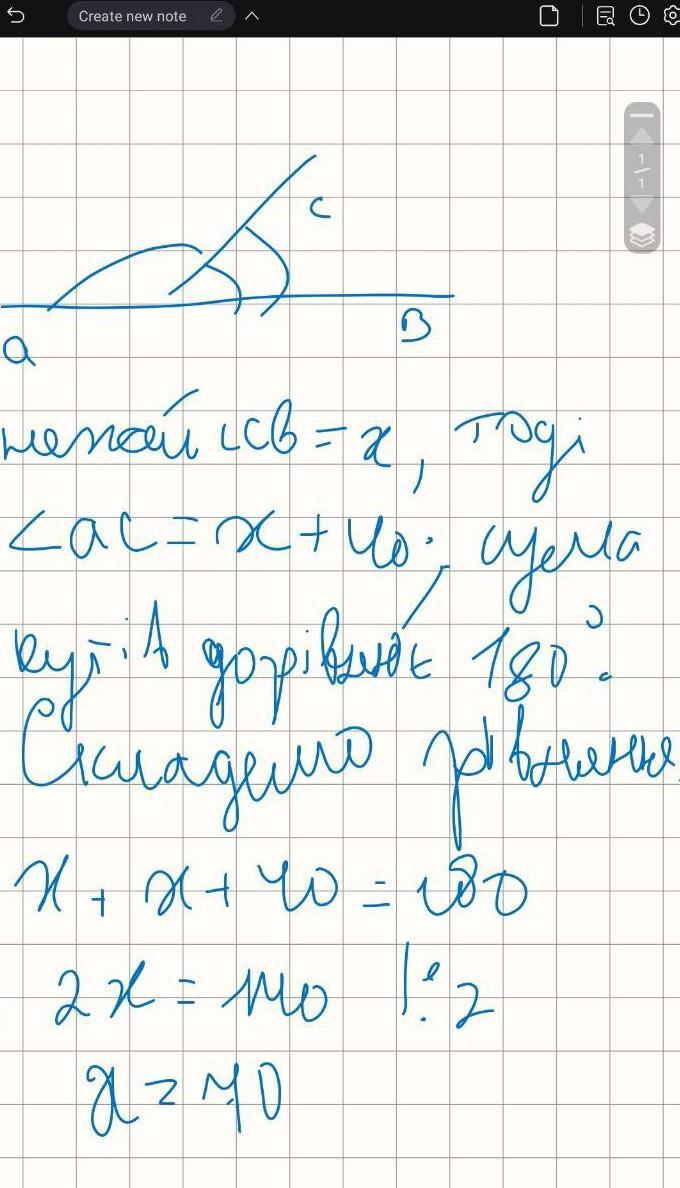 Create new note
1
1
C
a
B
нехай ∠CB = x, тоді
∠ac = x + 40°; сума
кутів дорівнює 180°.
Складемо рівняння
x + x + 40 = 180
2x = 140 |:2
x = 70